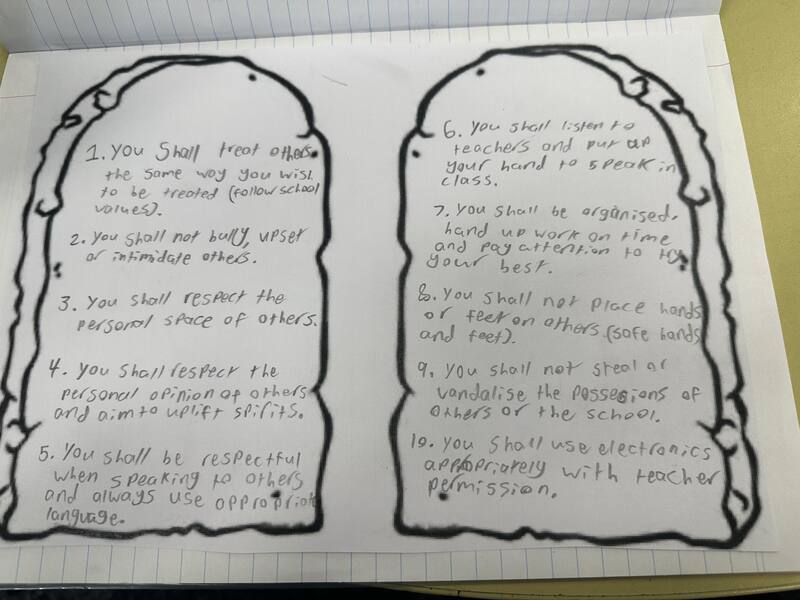 1. You Shall treat others
the same way you wish
to be treated (follow school
values).
2. You shall not bully, upset
or intimidate others.
3. You shall respect the
personal space of others.
4. You shall respect the
personal opinion of others
and aim to uplift spirits.
5. You shall be respectful
when speaking to others
and always use appropriate
language.
6. You shall listen to
teachers and put up
your hand to speak in
class.
7. You shall be organised,
hand up work on time
and pay attention to try
your best.
8. You shall not place hands
or feet on others (safe hands
and feet).
9. You shall not steal or
vandalise the possesions of
others or the school.
10. You shall use electronics
appropriately with teacher
permission.